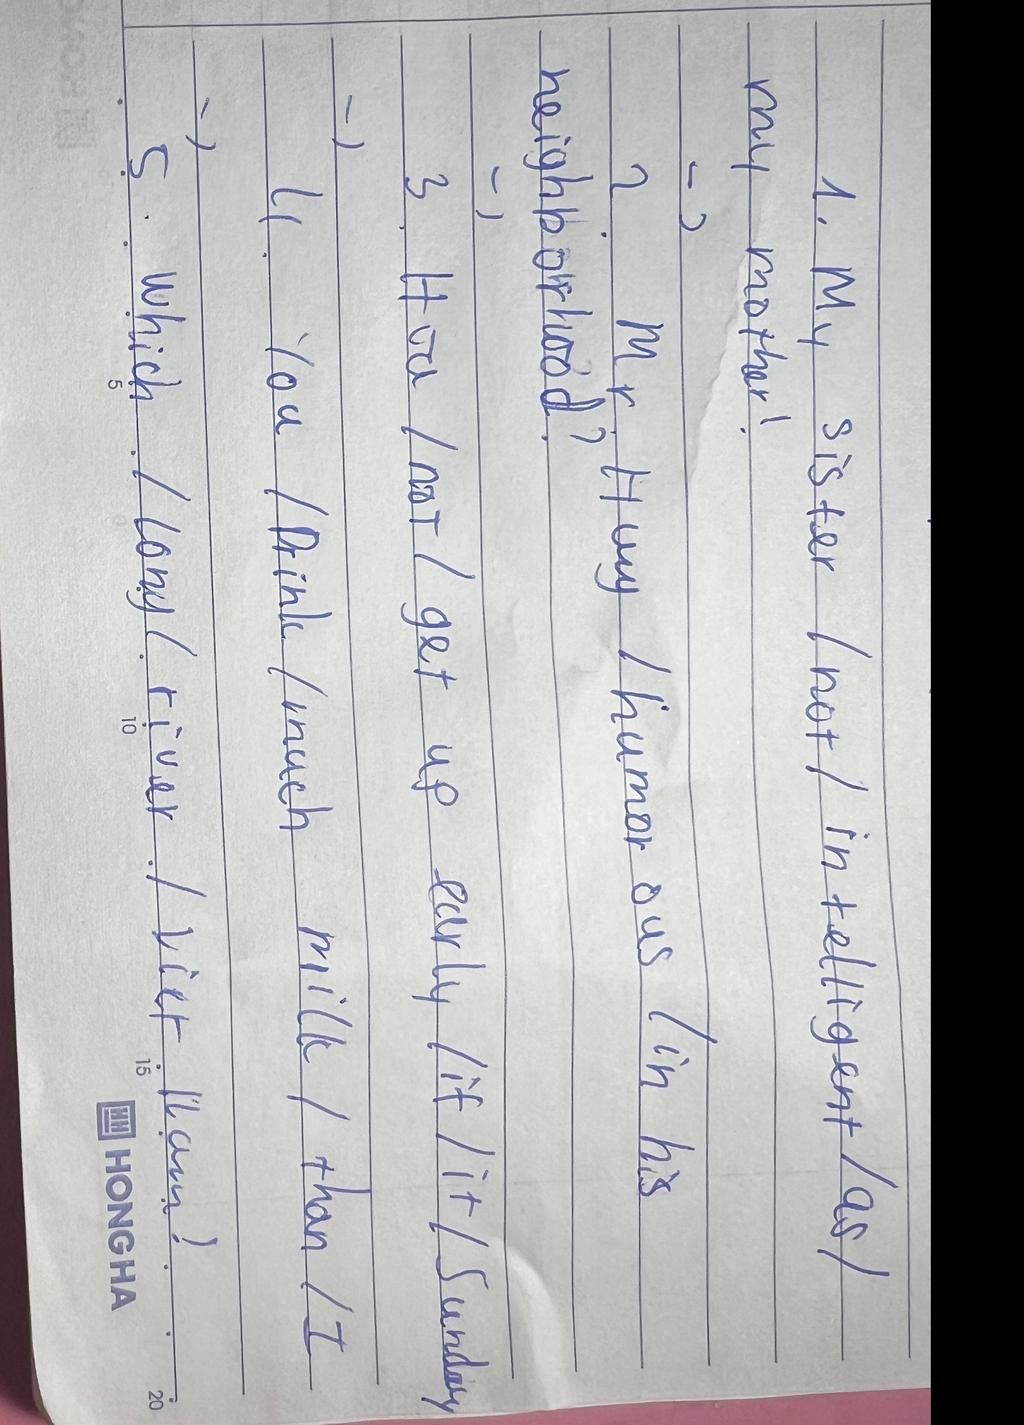 1. My sister / not / intelligent / as /
my mother!
->
2. Mr. Huy / humorous / in his
neighborhood?
->
3. Hoa / not / get up early / if / it / Sunday
->
4. You / Drink / much milk / than / I
->
5. Which / long / river / Viet Nam?
5 10 15 20
HONG HA